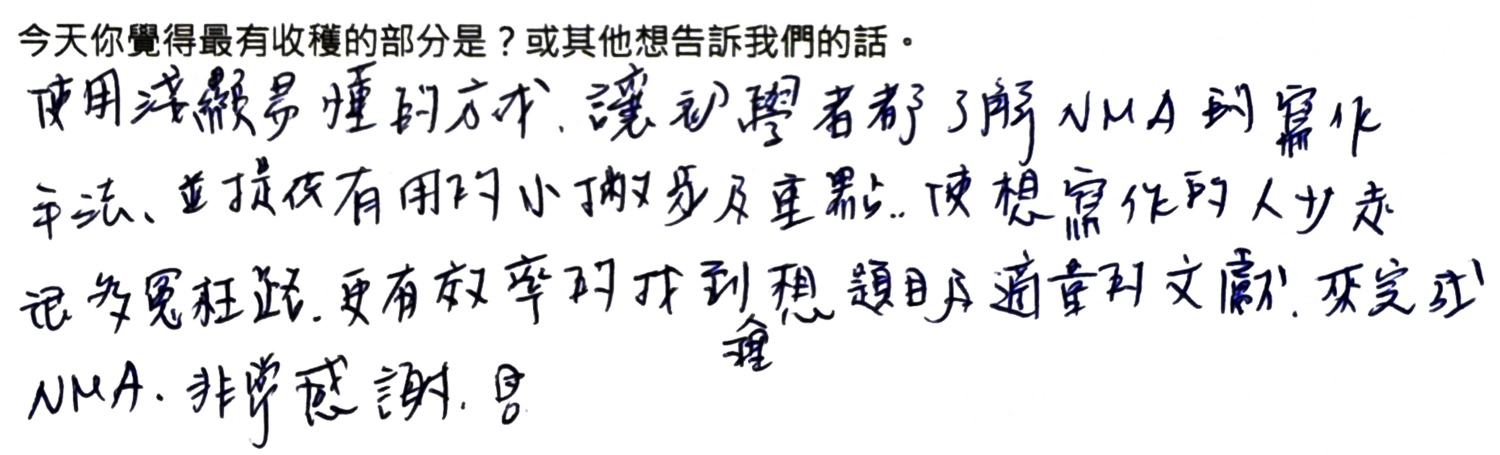 今天你覺得最有收穫的部分是？或其他想告訴我們的話。
使用淺顯易懂的方式、讓初學者都了解NMA的寫作
手法、並提供有用的小撇步及重點..使想寫作的人少走
很多冤枉路.更有效率的找到理想題目及適當的文獻.來完成
NMA.非常感謝.